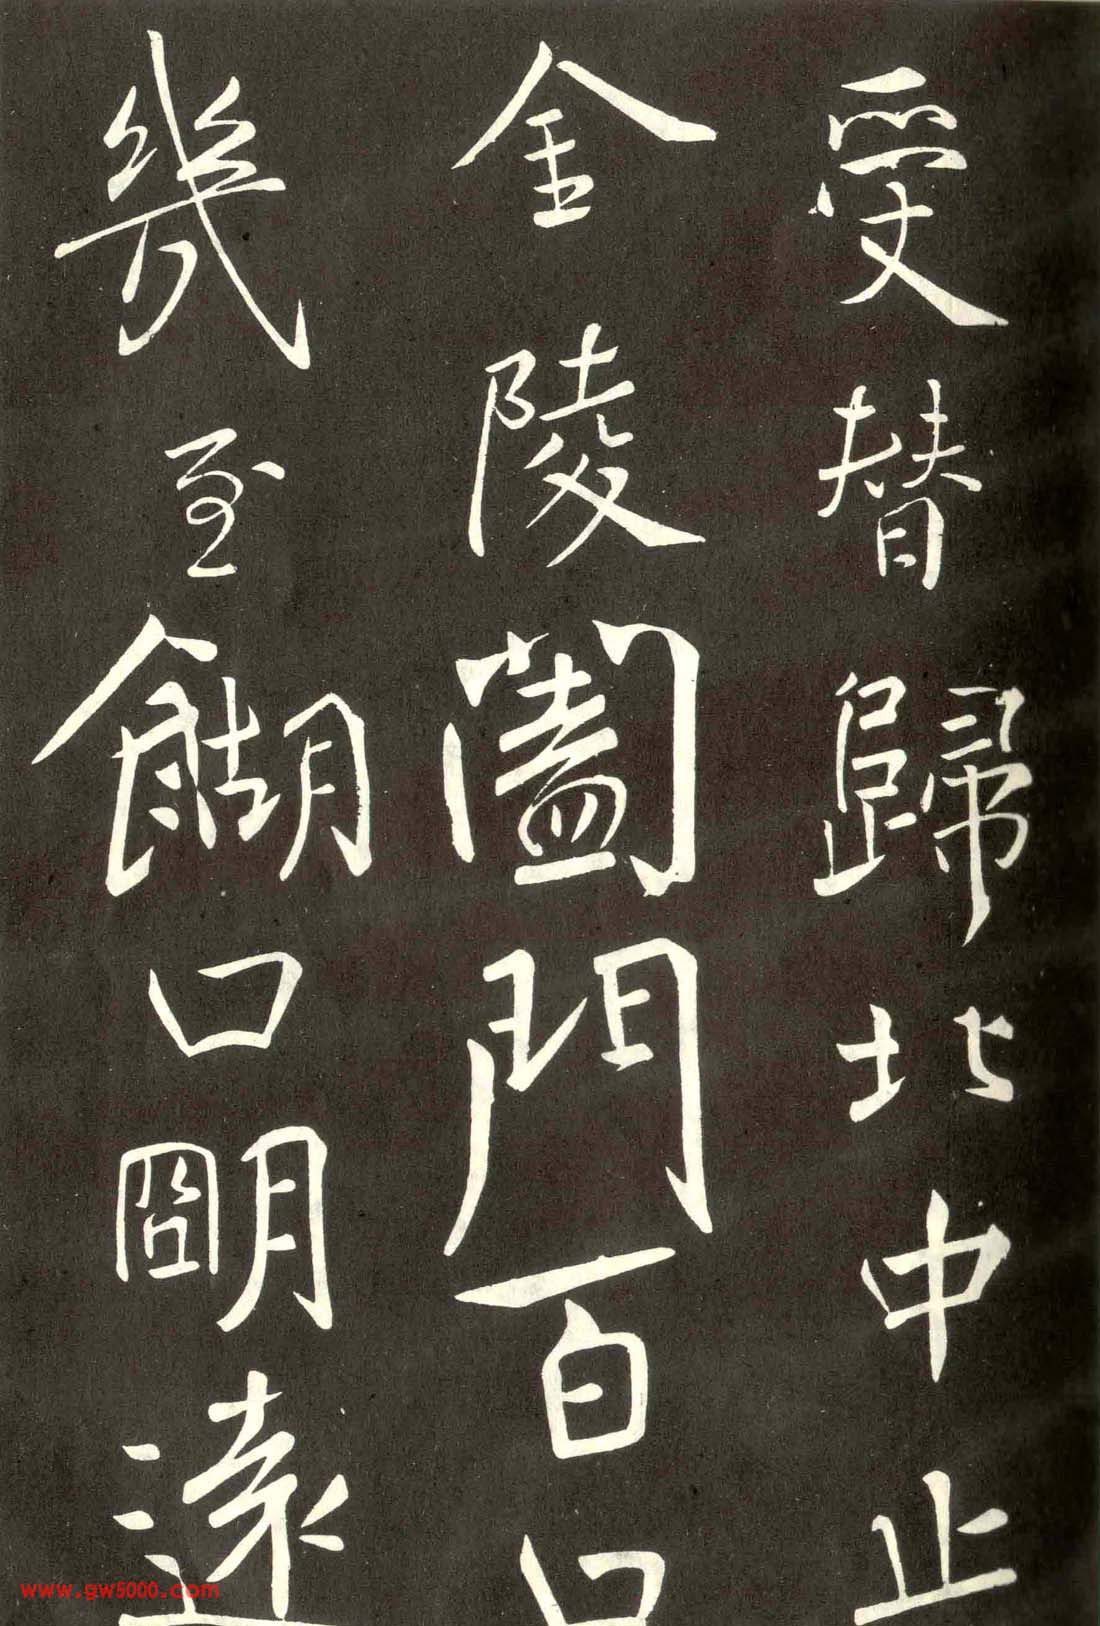 受替歸北中止
金陵闔門百口
幾至餬口明遠
www.gw5000.com